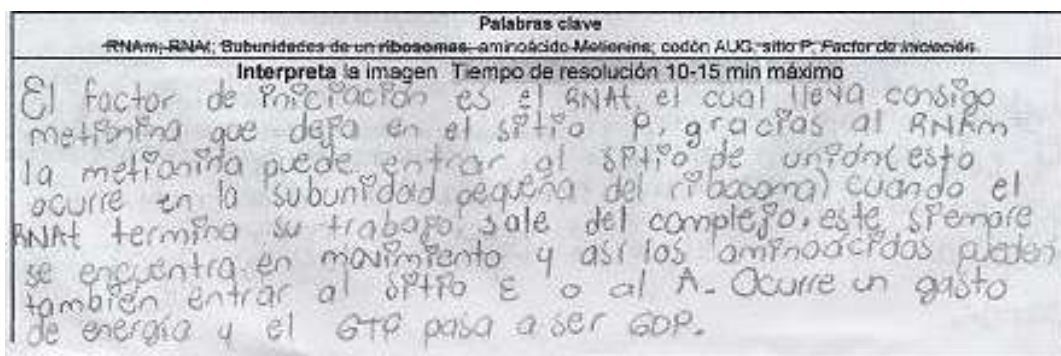 Palabras clave
RNAm; RNAt; Subunidades de un ribosomas; aminoácido Metionina; codón AUG; sitio P; Factor de iniciación.
Interpreta la imagen Tiempo de resolución 10-15 min máximo
El factor de iniciación es el RNAt, el cual lleva consigo
metionina que deja en el sitio P, gracias al RNAm
la metionina puede entrar al sitio de unión (esto
ocurre en la subunidad pequeña del ribosoma) cuando el
RNAt termina su trabajo sale del complejo, este siempre
se encuentra en movimiento y así los aminoácidos pueden
también entrar al sitio E o al A. Ocurre un gasto
de energía y el GTP pasa a ser GDP.